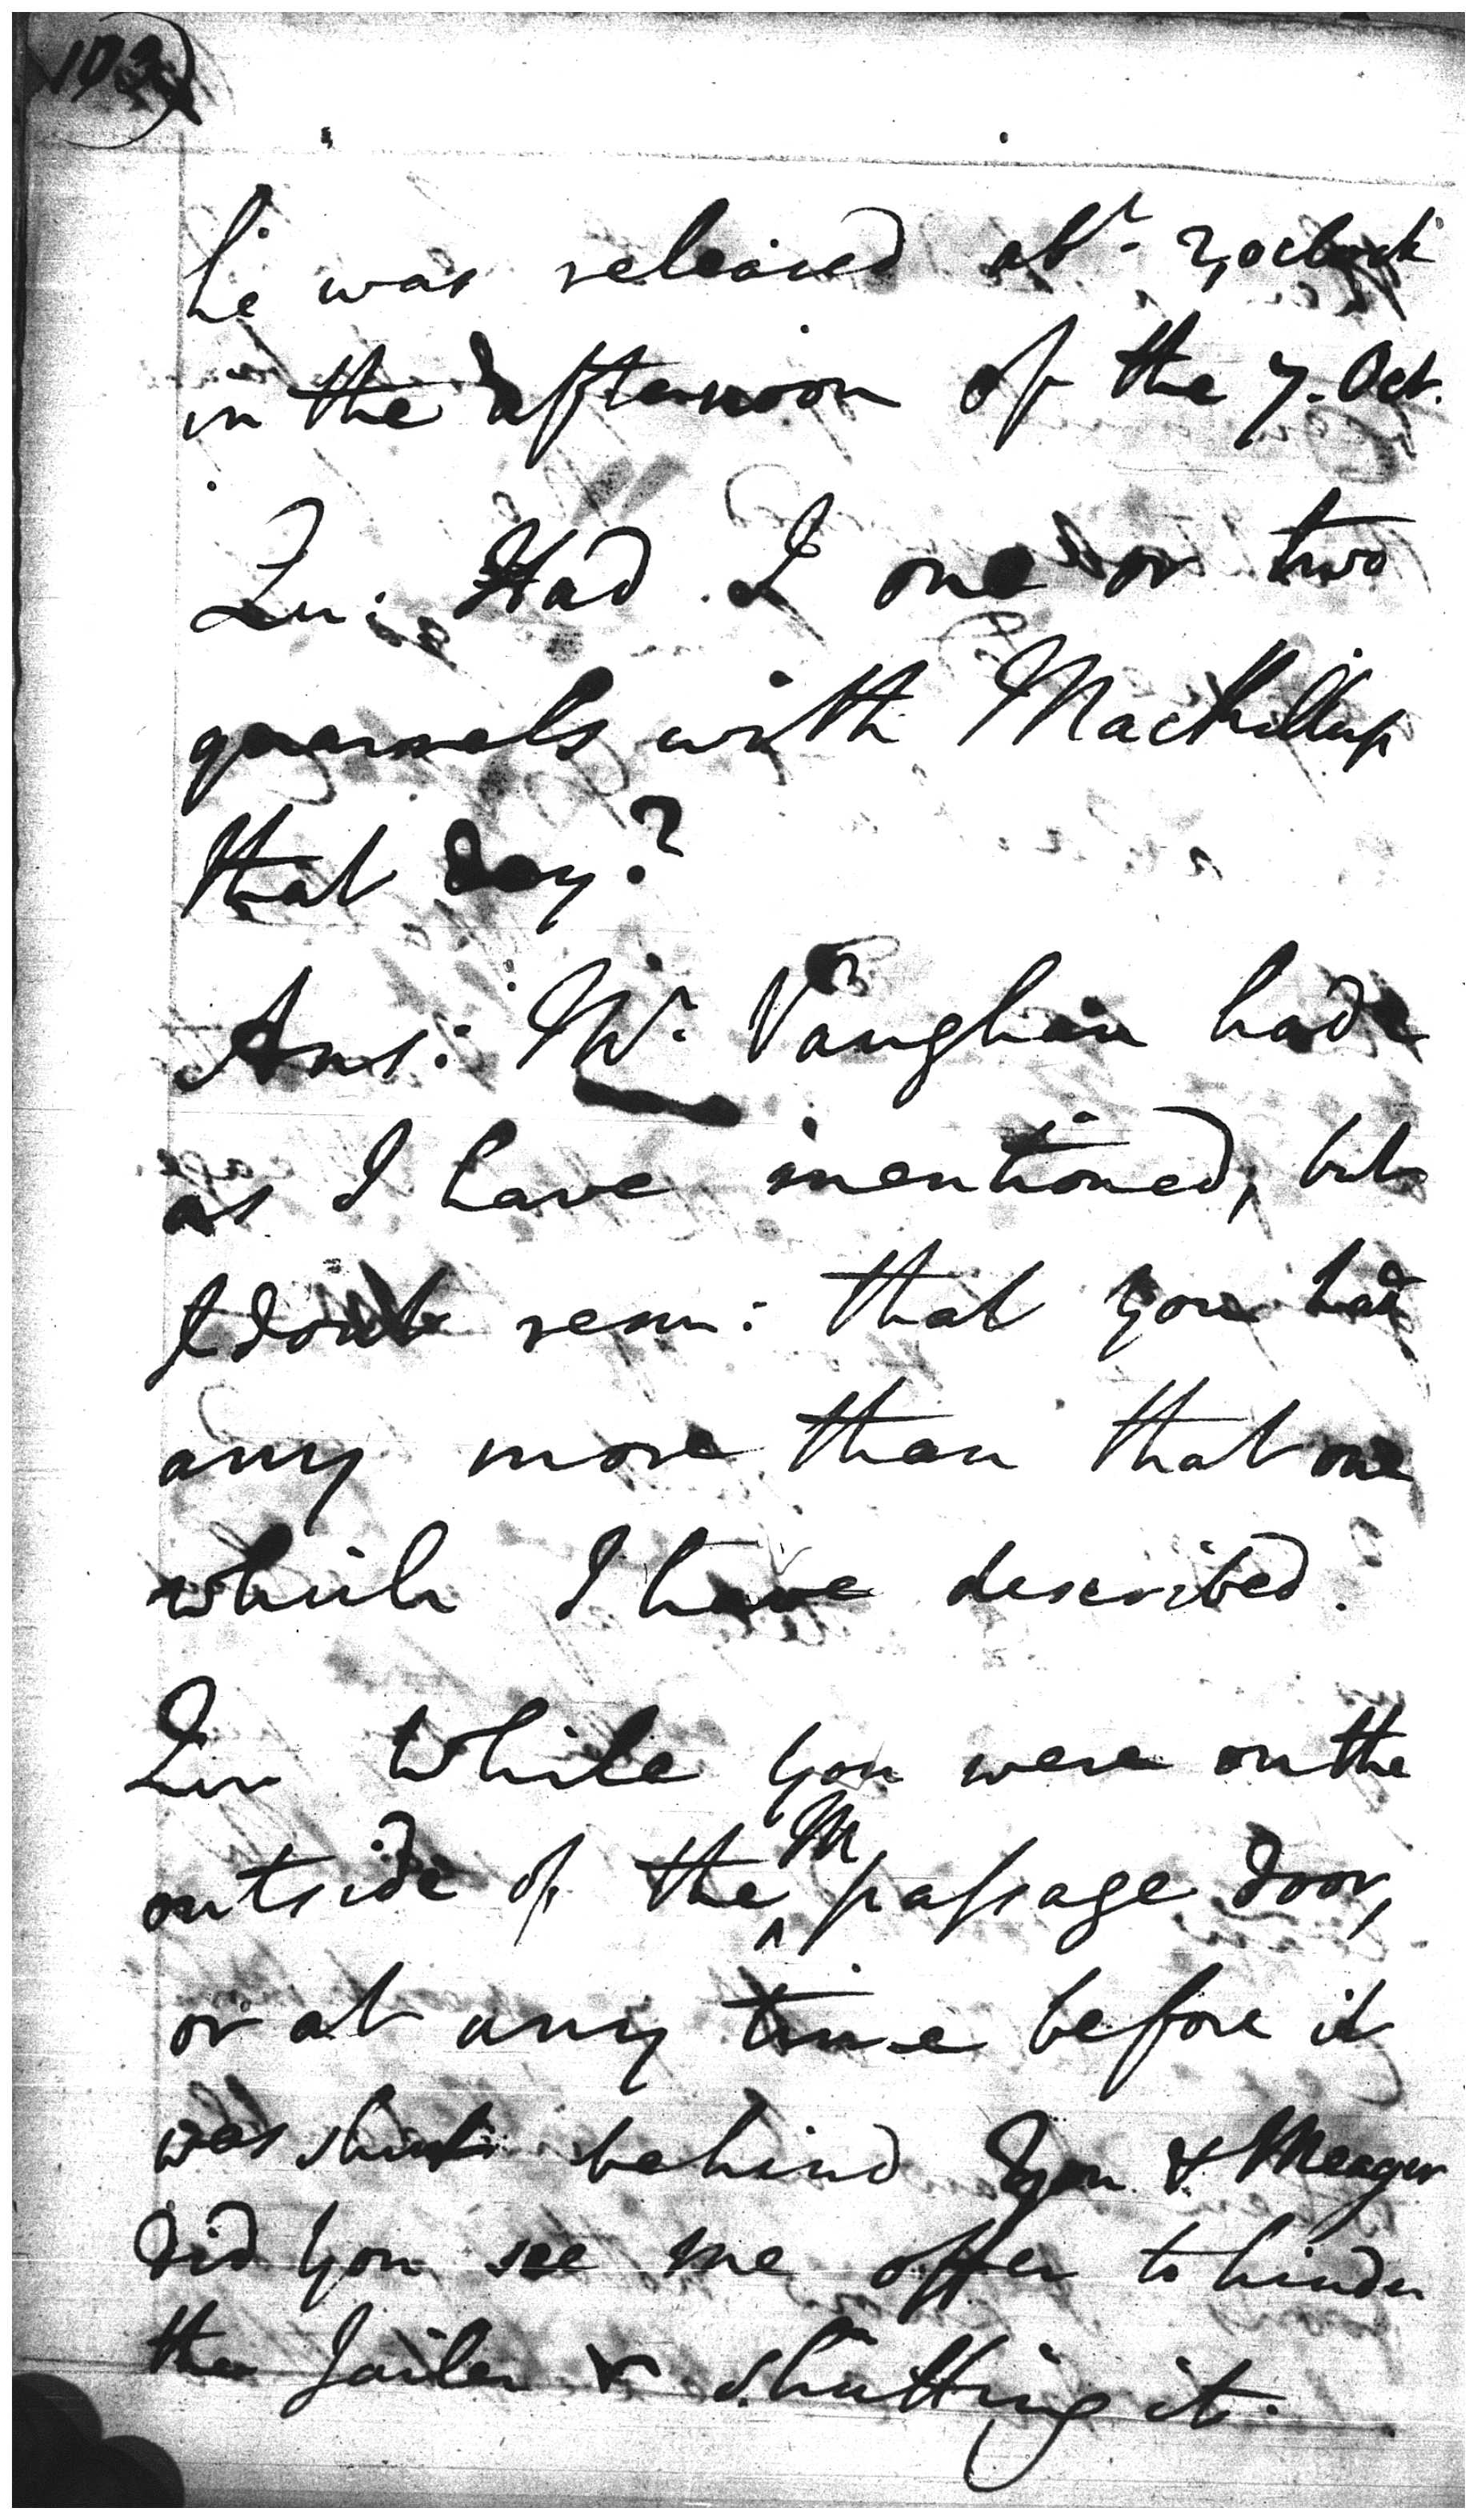 he was released abt. 2 oclock
in the afternoon of the 7. Oct.
Qu: Had I one or two
quarrels with Mackillup
that day?
Ans: Mr. Vaughan had
as I have mentioned, but
I dont rem: that you had
any more than that one
which I have described.
Qu While you were on the
outside of the M passage door,
or at any time before it
was shut behind you & Meager
did you see me offer to hinder
the Jailer shutting it.